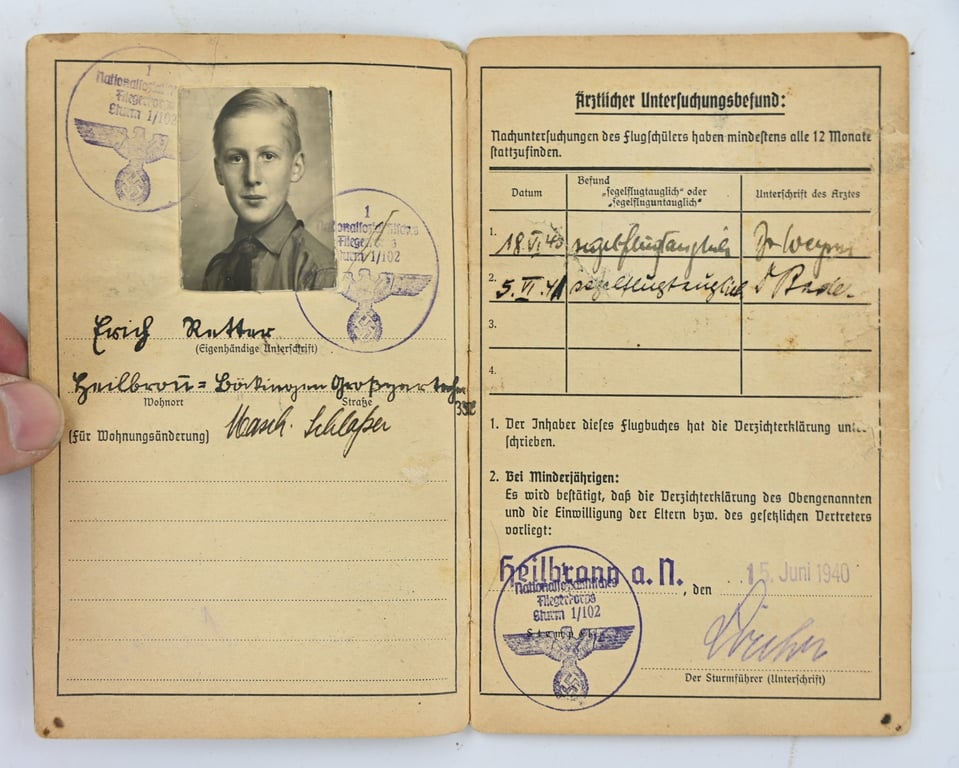 1
Nationalsozial
Fliegerkorps
Sturm 1/102
1
Nationalsozialistisches
Sturm 1/102
Erich Retter
(Eigenhändige Unterschrift)
Heilbronn = Böckingen Großgartacher
Wohnort Straße
(Für Wohnungsänderung) Masch. Schlosser
Ärztlicher Untersuchungsbefund:
Nachuntersuchungen des Flugschülers haben mindestens alle 12 Monate
stattzufinden.
Datum Befund „segelflugtauglich“ oder „segelfluguntauglich“ Unterschrift des Arztes
1. 18.VI.40 segelflugtauglich Dr
2. 5.VI.41 segelflugtauglich
3.
4.
1. Der Inhaber dieses Flugbuches hat die Verzichterklärung unter-
schrieben.
2. Bei Minderjährigen:
Es wird bestätigt, daß die Verzichterklärung des Obengenannten
und die Einwilligung der Eltern bzw. des gesetzlichen Vertreters
vorliegt:
Heilbronn a. N., den 15. Juni 1940
Nationalsozialistisches
Fliegerkorps
Sturm 1/102
Stempel
Der Sturmführer (Unterschrift)